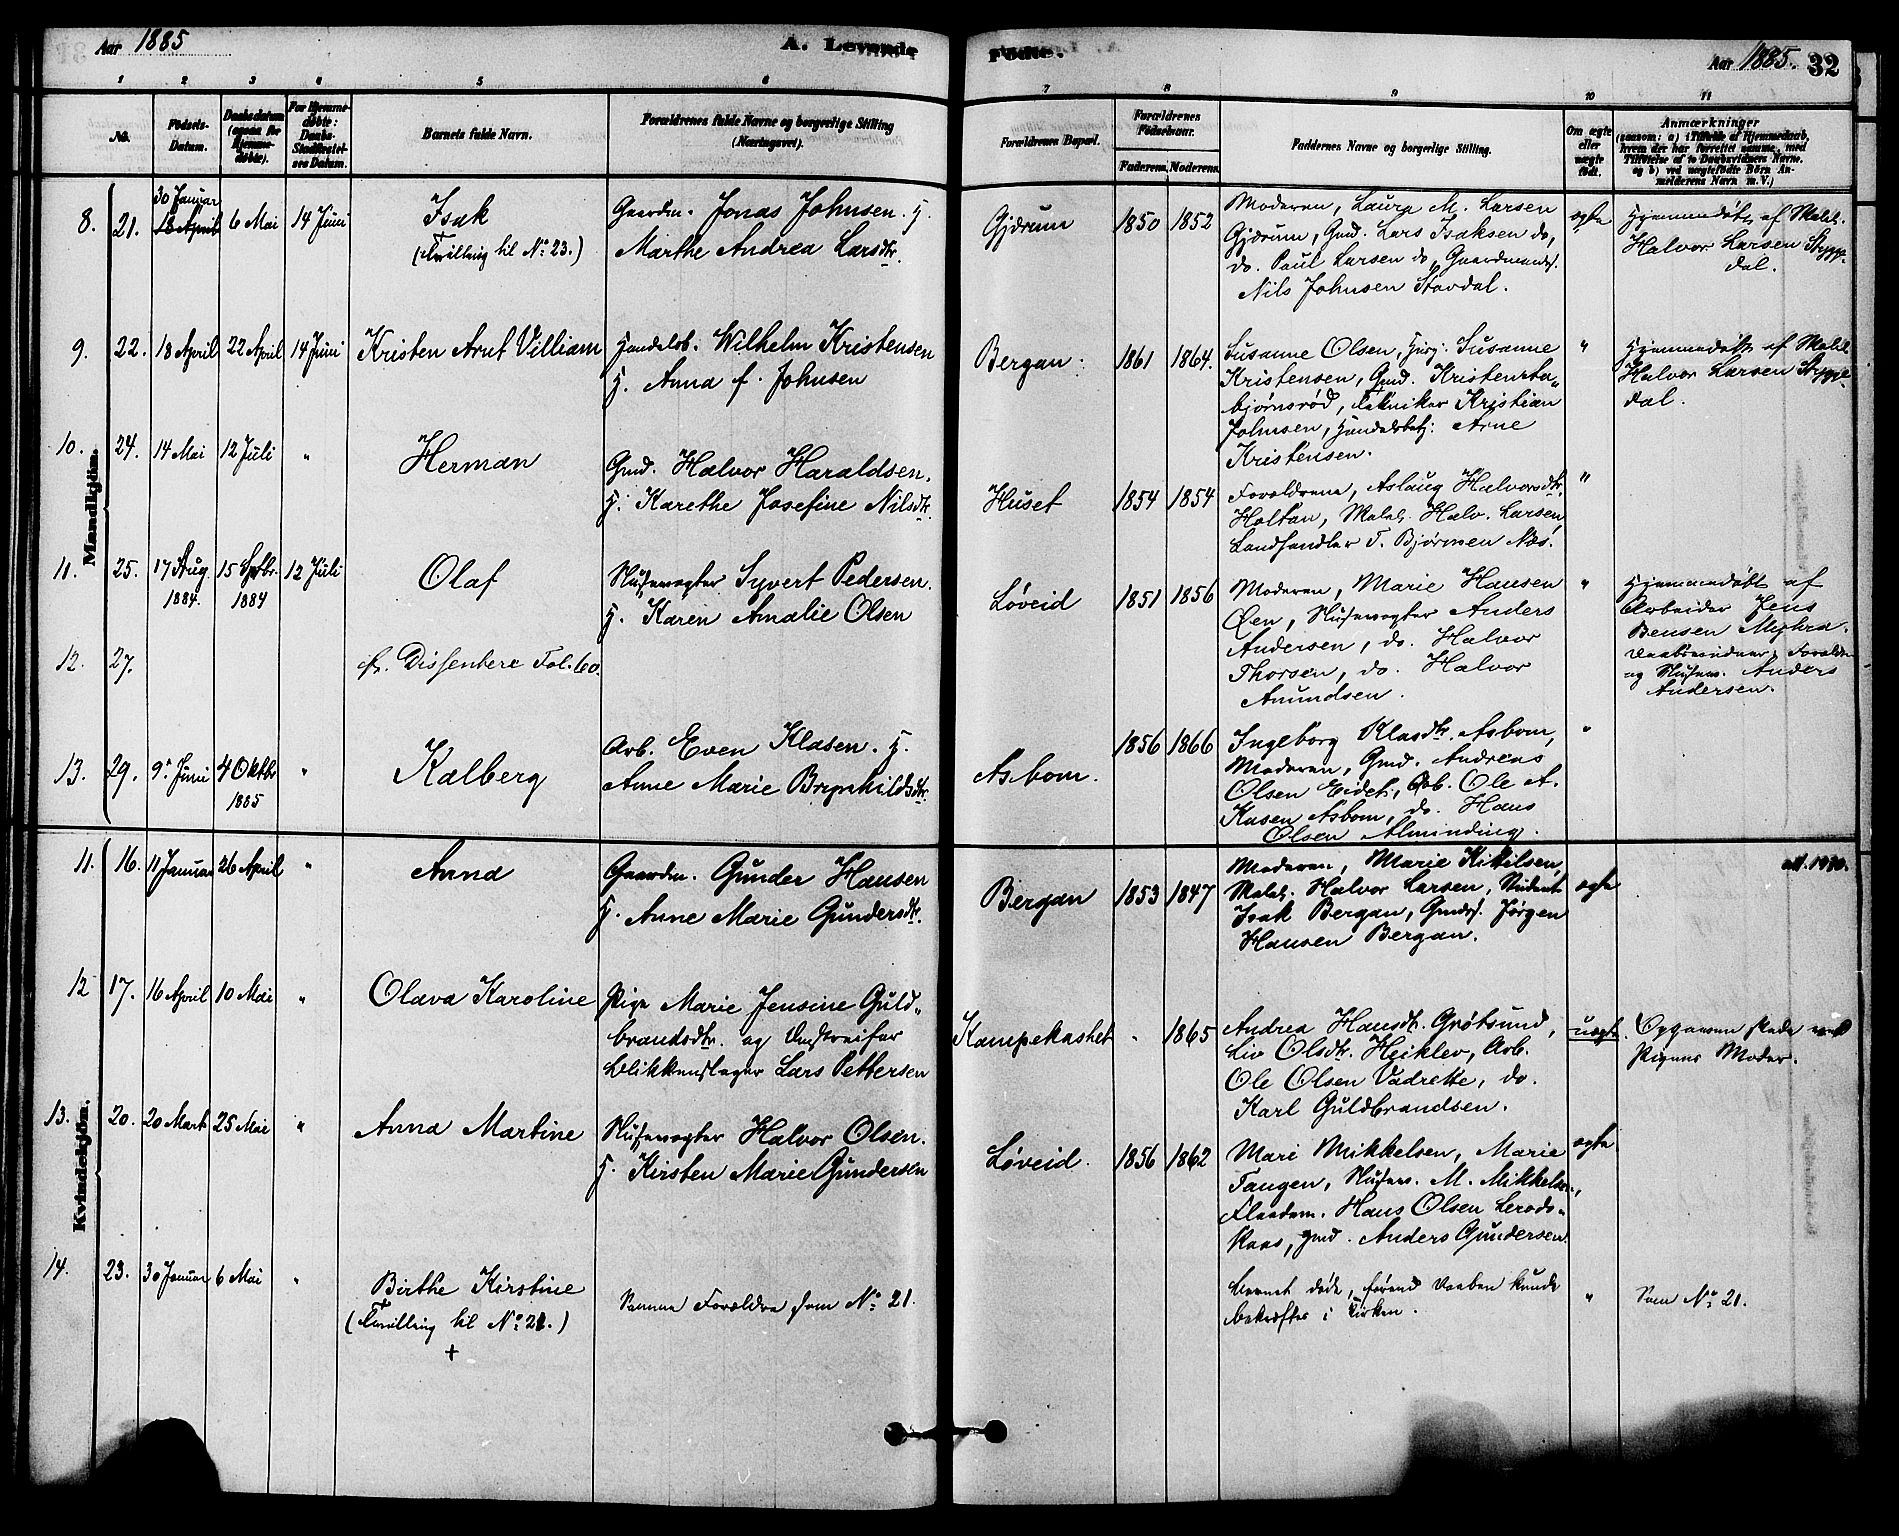 Aar 1885 A. Levende Fødte. Aar 1885. 32
1 2 3 4 5 6 7 8 9 10 11
No. Fødsels-Datum. Daabsdatum (ogsaa for Hjemmedøbte). For Hjemmedøbte: Daabs-Stadfæstelses Datum. Barnets fulde Navn. Forældrenes fulde Navne og borgerlige Stilling (Næringsvei). Forældrenes Bopæl. Forældrenes Fødselsaar. Faderens. Moderens. Faddernes Navne og borgerlige Stilling. Om ægte eller uægte født. Anmærkninger (saasom: a) i Tilfælde af Hjemmedaab, hvem der har forrettet samme, med Tilføielse af to Daabsvidners Navne, og b) ved uægtefødte Børn Anmelderens Navn m. V.)
Mandkjøn.
8. 21. 30 Januar 18 April 6 Mai 14 Juni Isak
(Tvilling til No 23.)
Gaardm. Jonas Johnsen. H.
Marthe Andrea Larsdtr.
Gjærum 1850 1852
Moderen, Laura M. Larsen
Gjærum, Gmd. Lars Isaksen do,
do. Paul Larsen do, Gaardmands.
Nils Johnsen Stavdal.
ægte
Hjemmedøbt af
Halvor Larsen Stygge-
dal.
9. 22. 18 April 22 April 14 Juni Kristen Arnt Villiam
Handelsb. Wilhelm Kristensen
H. Anna f. Johnsen
Bergan. 1861 1864.
Susanne Olsen, Susanne
Kristensen, Gmd. Kristen
bjørnsrød, Tekniker Kristian
Johnsen, Handelsbetj. Arne
Kristensen.
"
Hjemmedøbt af
Halvor Larsen Stygge-
dal.
10. 24. 14 Mai 12 Juli " Herman
Gmd. Halvor Haraldsen.
H. Karethe Josefine Nilsdtr.
Huset 1854 1854
Forældrene, Aslaug Halvorsdtr.
Holtan, Halv. Larsen,
Landhandler T. Bjørnsen Næs.
"
11. 25. 17 Aug. 1884. 15 Septbr. 1884 12 Juli Olaf
Slusevogter Syvert Pedersen.
H. Karen Amalie Olsen
Løveid 1851 1856
Moderen, Marie Hansen
Øen, Slusevogter Anders
Andersen, do. Halvor
Thorsen, do. Halvor
Amundsen.
"
Hjemmedøbt af
Arbeider Jens
Bensen
Daabsvidner, Forældre
og Slusev. Anders
Andersen.
12. 27. cfr. Dissentere Fol. 60.
13. 29. 9. Juni 4 Oktbr 1885 " Kalberg
Arb. Even Klasen. H.
Anne Marie Brynhildsdtr.
Asbom. 1856 1866
Ingeborg Klasdtr. Asbom,
Moderen, Gmd. Andreas
Olsen Eidet, Arb. Ole A.
Kasen Asbom, do. Hans
Olsen Alminding.
"
Kvindekjøn.
11. 16. 11 Januar 26 April " Anna
Gaardm. Gunder Hansen
H. Anne Marie Gundersdtr.
Bergan 1853 1847
Moderen, Marie Kittilsen,
Halvor Larsen, Student
Isak Bergan, Gmds. Jørgen
Hansen Bergan.
ægte
12 17. 16 April 10 Mai " Olava Karoline
Pige Marie Jensine Guld-
brandsdtr. og Omstreifer
Blikkenslager Lars Pettersen
Kampekastet - 1865
Andrea Hansdtr. Grøtsund,
Liv Olsdtr. Heiklev, Arb.
Ole Olsen Vadrette, do.
Karl Guldbrandsen.
uægte.
Opgaven skede ved
Pigens Moder.
13. 20. 20 Marts 25 Mai " Anna Martine
Slusevogter Halvor Olsen.
H. Kirsten Marie Gundersen
Løveid. 1856 1862
Mari Mikkelsen, Marie
Tangen, Slusev. M. Mikkelsen,
Hans Olsen
Anders Gundersen.
ægte
14. 23. 30 Januar 6 Mai " Birthe Kirstine
(Tvilling til No 21.)
+
Samme Forældre som No 21.
Barnet døde, førend Daaben kunde
bekræftes i Kirken.
"
Som No 21.